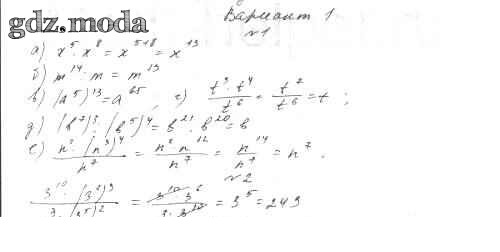 gdz.moda
Вариант 1
№1
а) x⁵ · x⁸ = x⁵⁺⁸ = x¹³
б) m¹⁴ · m = m¹³
в) (a⁵)¹³ = a⁶⁵, г) t³ · t⁴ / t⁶ = t⁷ / t⁶ = t ;
д) (b⁷)³ · (b⁵)⁴ = b²¹ · b²⁰ = b
е) n² · (n³)⁴ / n⁷ = n² · n¹² / n⁷ = n¹⁴ / n⁷ = n⁷.
№2
3¹⁰ · (3²)³ / 3 · (3⁵)² = 3¹⁰ · 3⁶ / 3 · 3¹⁰ = 3⁵ = 243